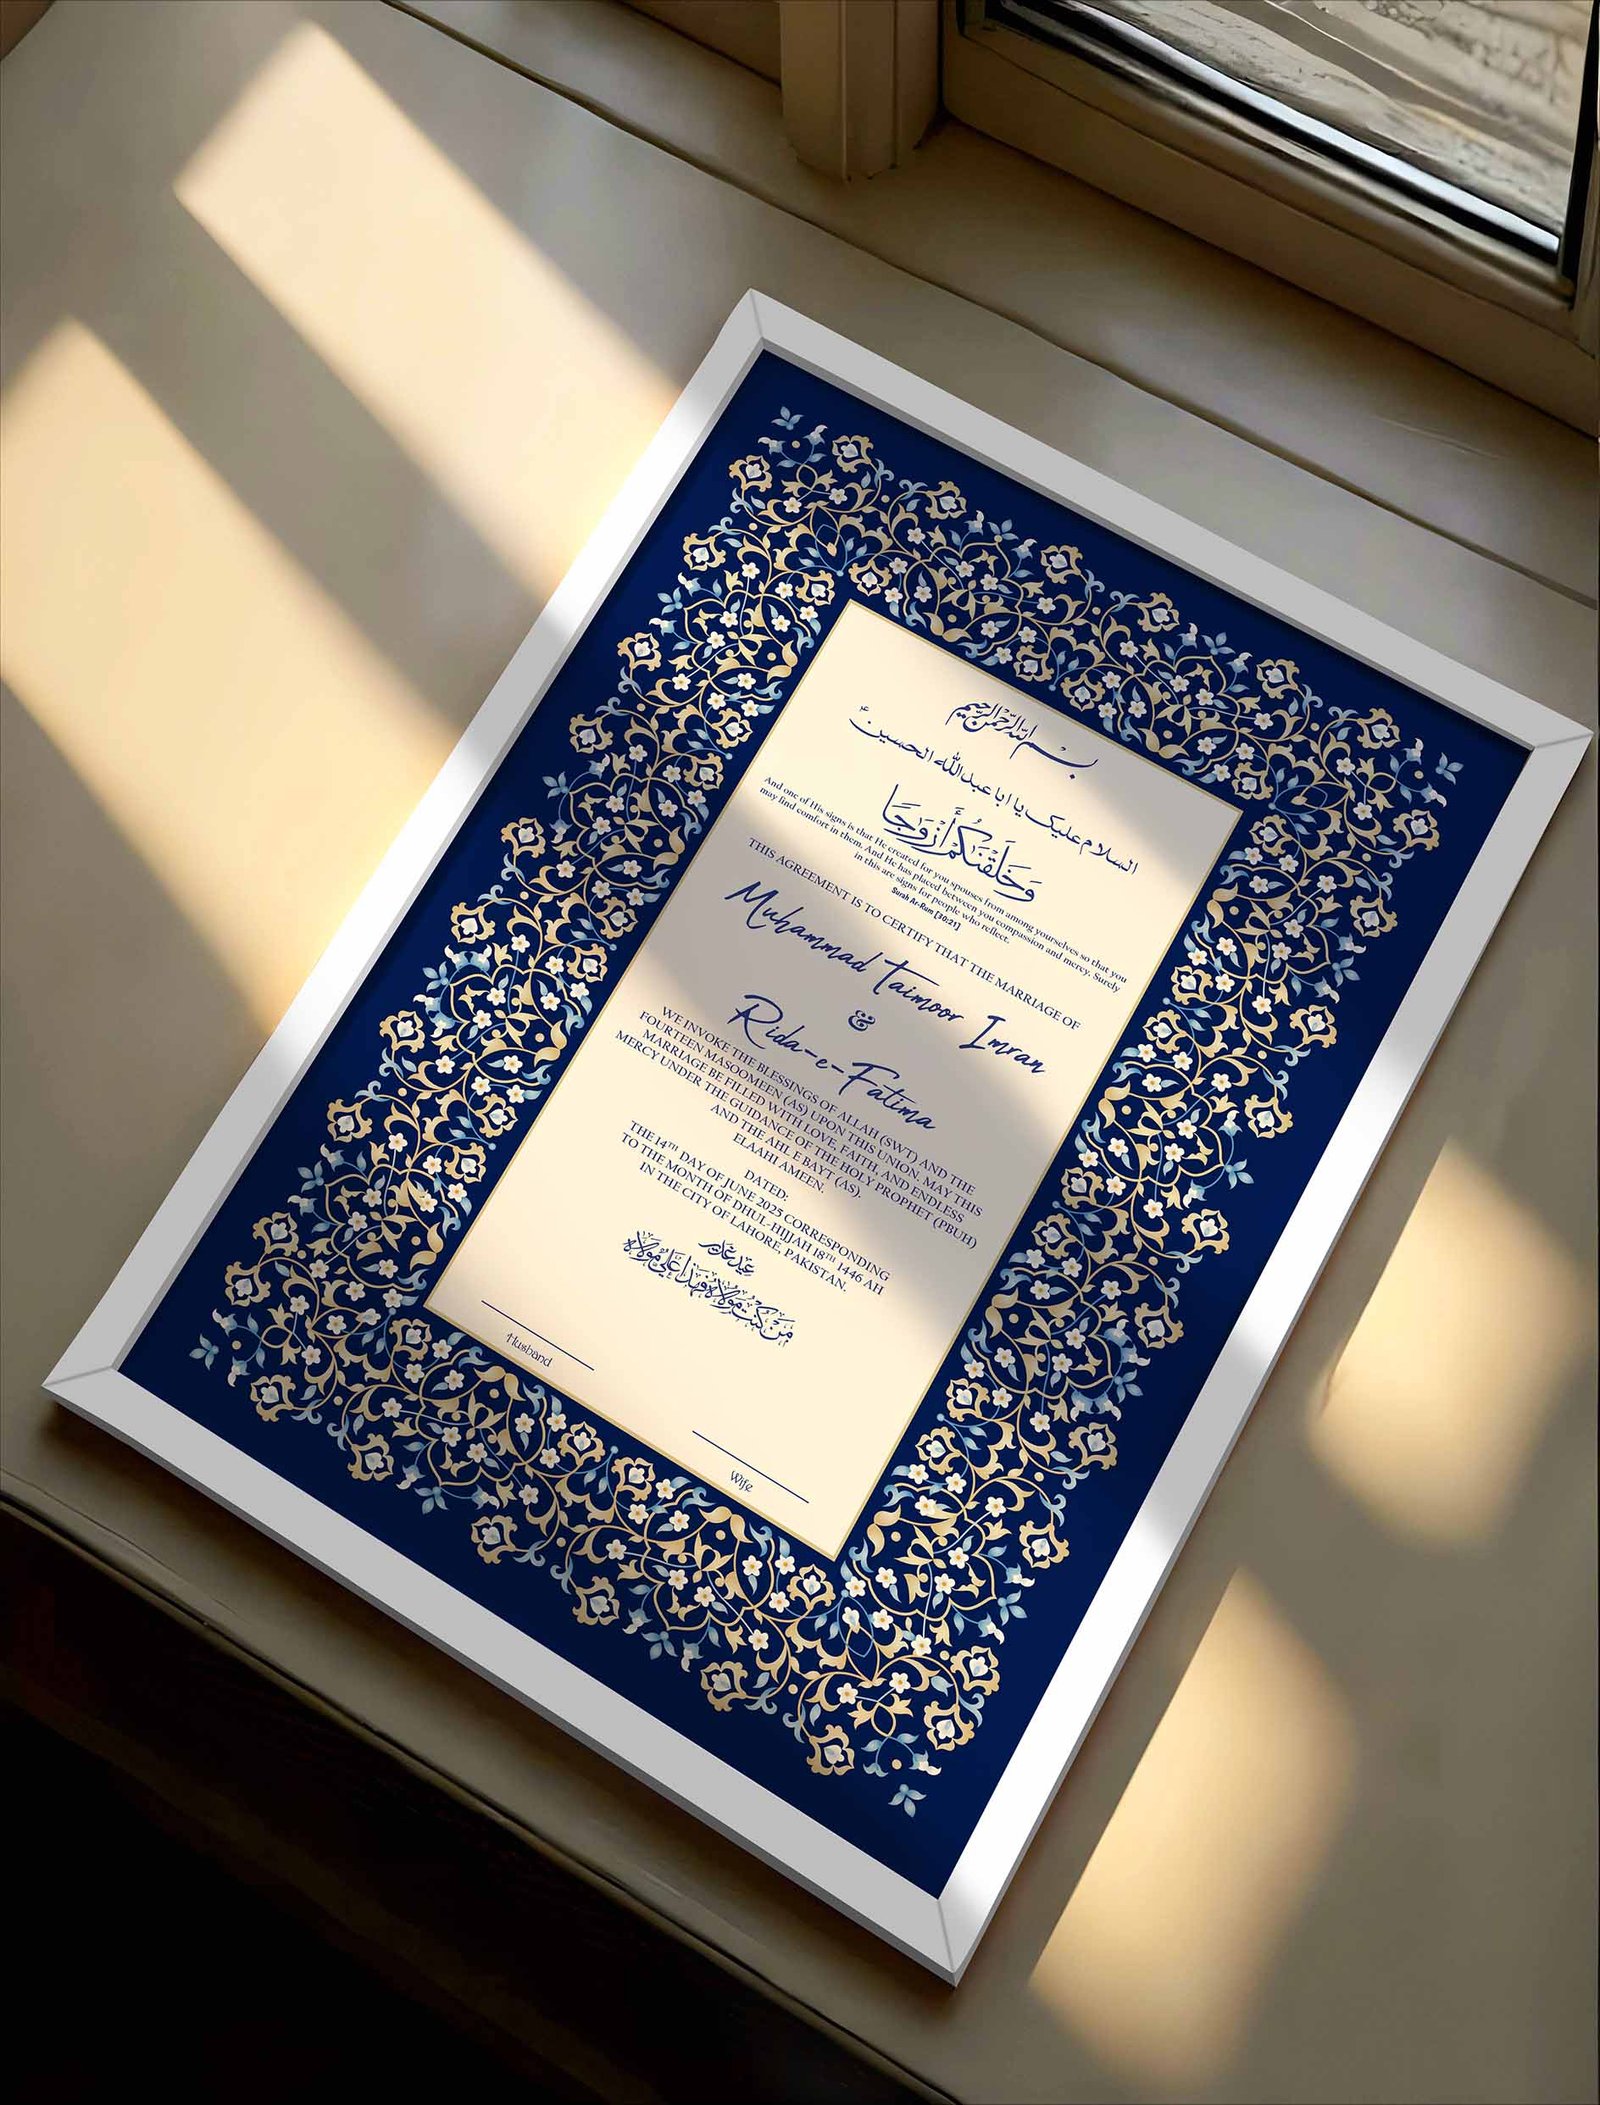 بسم الله الرحمن الرحيم
السلام علیک یا ابا عبد اللہ الحسین ؑ
وَخَلَقْنَاكُمْ أَزْوَاجًا
And one of His signs is that He created for you spouses from among yourselves so that you
may find comfort in them. And He has placed between you compassion and mercy. Surely
in this are signs for people who reflect.
Surah Ar-Rum [30:21]
THIS AGREEMENT IS TO CERTIFY THAT THE MARRIAGE OF
Muhammad Taimoor Imran
&
Rida-e-Fatima
WE INVOKE THE BLESSINGS OF ALLAH (SWT) AND THE
FOURTEEN MASOOMEEN (AS) UPON THIS UNION. MAY THIS
MARRIAGE BE FILLED WITH LOVE, FAITH, AND ENDLESS
MERCY UNDER THE GUIDANCE OF THE HOLY PROPHET (PBUH)
AND THE AHL E BAYT (AS).
ELAAHI AMEEN.
DATED:
THE 14TH DAY OF JUNE 2025 CORRESPONDING
TO THE MONTH OF DHUL-HIJJAH 18TH 1446 AH
IN THE CITY OF LAHORE, PAKISTAN.
عید غدیر
مَن كُنتُ مَولاهُ فَهٰذا عَلِيٌّ مَولاهُ
Husband
Wife